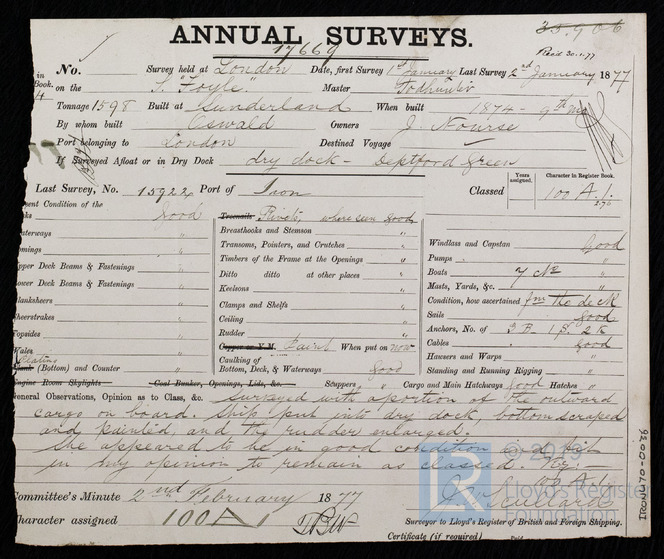 35906
ANNUAL SURVEYS.
17669
Recd 30.1.77
No. Survey held at London Date, first Survey 1st January Last Survey 2nd January 1877
in Book.
on the S. "Foyle" Master Todhunter
Tonnage 1598 Built at Sunderland When built 1874 - 9th mo
By whom built Oswald Owners J. Nourse
Port belonging to London Destined Voyage
If Surveyed Afloat or in Dry Dock dry dock - Deptford Green
Last Survey, No. 15922 Port of Iron Classed Years assigned. Character in Register Book. 100 A.1. 2.76
ent Condition of the
ks good
aterways "
omings "
pper Deck Beams & Fastenings "
ower Deck Beams & Fastenings "
lanksheers "
heerstrakes "
opsides "
Wales "
Plating
Plank (Bottom) and Counter "
Engine Room Skylights Coal Bunker, Openings, Lids, &c.
Treenails Rivets, where seen good
Breasthooks and Stemson "
Transoms, Pointers, and Crutches "
Timbers of the Frame at the Openings "
Ditto ditto at other places "
Keelsons "
Clamps and Shelfs "
Ceiling "
Rudder "
Copper or Y.M. Paint When put on now
Caulking of Bottom, Deck, & Waterways good
Scuppers " Cargo and Main Hatchways good Hatches "
Windlass and Capstan Good
Pumps "
Boats 7 No "
Masts, Yards, &c. "
Condition, how ascertained fm the deck
Sails good
Anchors, No. of 3 B. 1 S. 2 K
Cables good
Hawsers and Warps "
Standing and Running Rigging "
General Observations, Opinion as to Class, &c. Surveyed with a portion of the outward
cargo on board. Ship put into dry dock, bottom scraped
and painted, and the rudder enlarged.
She appeared to be in good condition and fit
in my opinion to remain as classed.
100 A1
Committee's Minute 2nd February 1877
Character assigned 100 A 1
Surveyor to Lloyd's Register of British and Foreign Shipping.
Certificate (if required)
LR
© 20
Lloyd's Register
Foundation
IRON470-0036